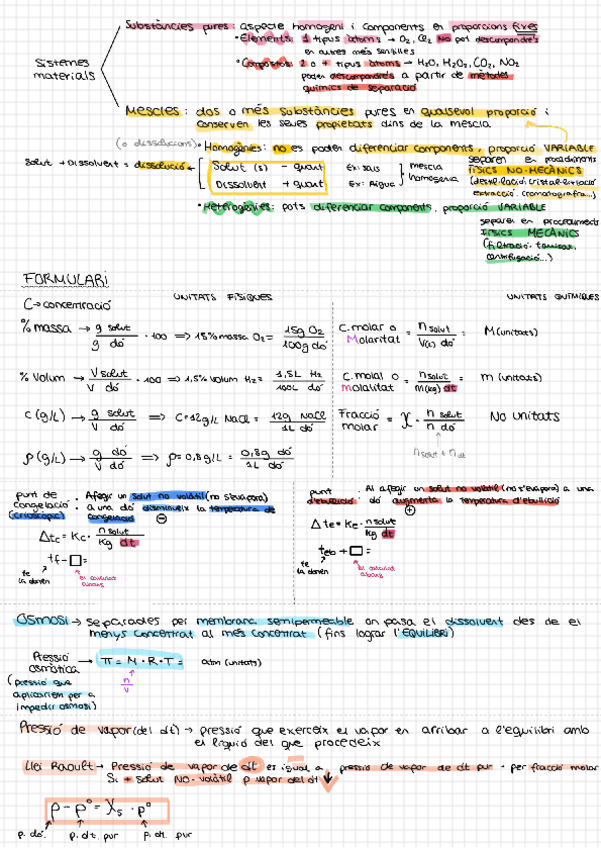 Substàncies pures: aspecte homogeni i components en proporcions fixes
• Elements: 1 tipus àtoms → O₂, Cl₂ NO pot descompondre's
en altres més senzilles
Sistemes
materials
• Compostos: 2 o + tipus àtoms → H₂O, H₂O₂, CO₂, NO₂
poden descompondre's a partir de mètodes
químics de separació
Mescles: dos o més substàncies pures en qualsevol proporció i
conserven les seues propietats dins de la mescla
(o dissolucions)
• Homogènies: no es poden diferenciar components, proporció VARIABLE
Solut + Dissolvent = dissolució
Solut (s) - quant
Dissolvent + quant
Ex: sals
Ex: Aigua
mescla
homogenia
separen en procediments
FÍSICS NO-MECÀNICS
(destil·lació, cristal·lització
extracció, cromatografia...)
• Heterogènies: pots diferenciar components, proporció VARIABLE
separen en procediments
FÍSICS MECÀNICS
(filtració, tamisar,
centrifugació...)
FORMULARI
C → concentració
UNITATS FÍSIQUES
UNITATS QUÍMIQUES
% massa → g solut / g dó · 100 ⇒ 15% massa O₂ = 15g O₂ / 100g dó
C. molar o Molaritat = n solut / V(l) dó = M (unitats)
% Volum → V solut / V dó · 100 ⇒ 1,5% volum H₂ = 1,5L H₂ / 100L dó
C. molal o molalitat = n solut / M(kg) dt = m (unitats)
C (g/L) → g solut / V dó ⇒ C = 12g/L NaCl = 12g NaCl / 1L dó
Fracció molar = χ · n solut / n dó NO unitats
n solut + n dt
ρ (g/L) → g dó / V dó ⇒ ρ = 0,8g/L = 0,8g dó / 1L dó
punt de
congelació
(crioscòpic)
: Afegir un solut no volàtil (no s'evapora)
a una dó disminueix la temperatura de
congelació ⊖
Δtc = Kc · n solut / Kg dt
tf - □ =
te
la donen
El calculat
abans
punt
d'ebullició
: Al afegir un solut no volàtil (no s'evapora) a una
dó augmenta la temperatura d'ebullició
⊕
Δte = Ke · n solut / Kg dt
teb + □ =
te
la donen
El calculat
abans
OSMOSI → Separades per membrana semipermeable on passa el dissolvent des de el
menys concentrat al més concentrat (fins lograr l'EQUILIBRI)
Pressió
osmòtica → π = M · R · T = atm (unitats)
n/V
(pressió que
aplicaríem per a
impedir osmosi)
Pressió de vapor (del dt) → pressió que exerceix el vapor en arribar a l'equilibri amb
el líquid del que procedeix
Llei Raoult → Pressió de vapor de dt es igual a pressió de vapor de dt pur · per fracció molar
Si + solut NO-volàtil p vapor del dt ↓
p - p° = χs · p°
p. dó.
p. dt. pur
p. dt. pur